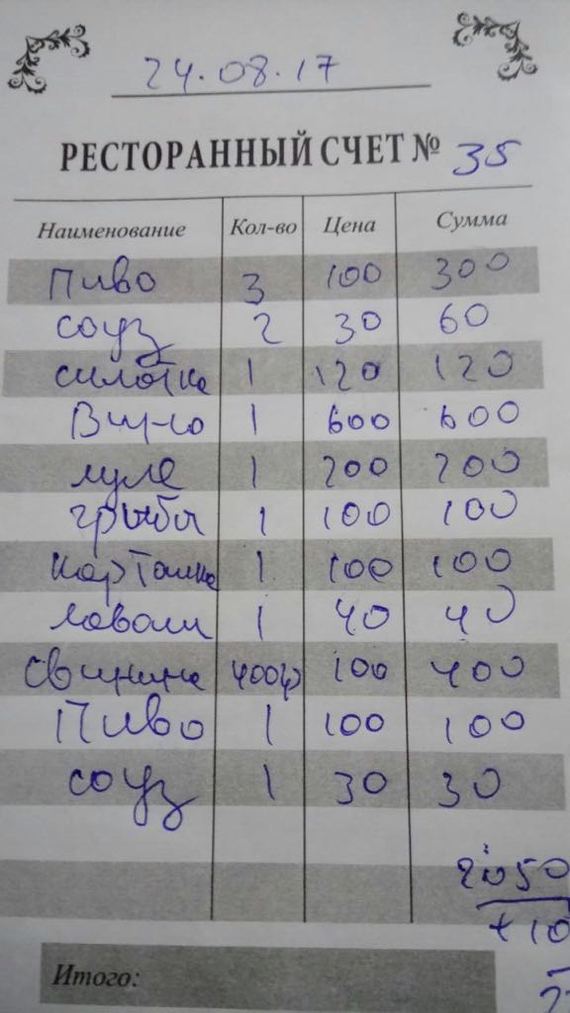 24.08.17
РЕСТОРАННЫЙ СЧЕТ № 35
Наименование Кол-во Цена Сумма
Пиво 3 100 300
соуз 2 30 60
силотке 1 120 120
Вино 1 600 600
луле 1 200 200
грыбы 1 100 100
картошка 1 100 100
Лаваш 1 40 40
Свинина 400гр 100 400
Пиво 1 100 100
соуз 1 30 30
2050
+10
Итого: